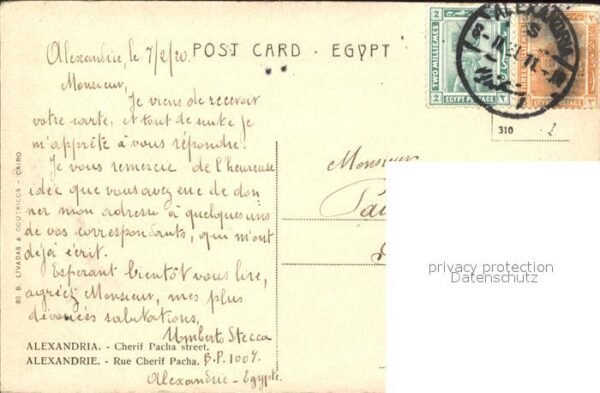 Alexandrie, le 7/2/20.
POST CARD - EGYPT
Monsieur,
Je viens de recevoir
votre carte, et tout de suite je
m'apprête à vous répondre.
Je vous remercie de l'heureuse
idée que vous avez eue de don-
ner mon adresse à quelques uns
de vos correspondants, qui m'ont
déjà écrit.
Esperant bientôt vous lire,
agréez Monsieur, mes plus
dévouées salutations,
Umberto Stecca
B.P. 1007.
Alexandrie - Egypte.
ALEXANDRIA. - Cherif Pacha street.
ALEXANDRIE. - Rue Cherif Pacha.
80 B. LIVADAS & COUTSICOS - CAIRO
2
TWO MILLIEMES
EGYPT POSTAGE
POSTAGE
ALEXANDRIA
310
Monsieur
privacy protection
Datenschutz